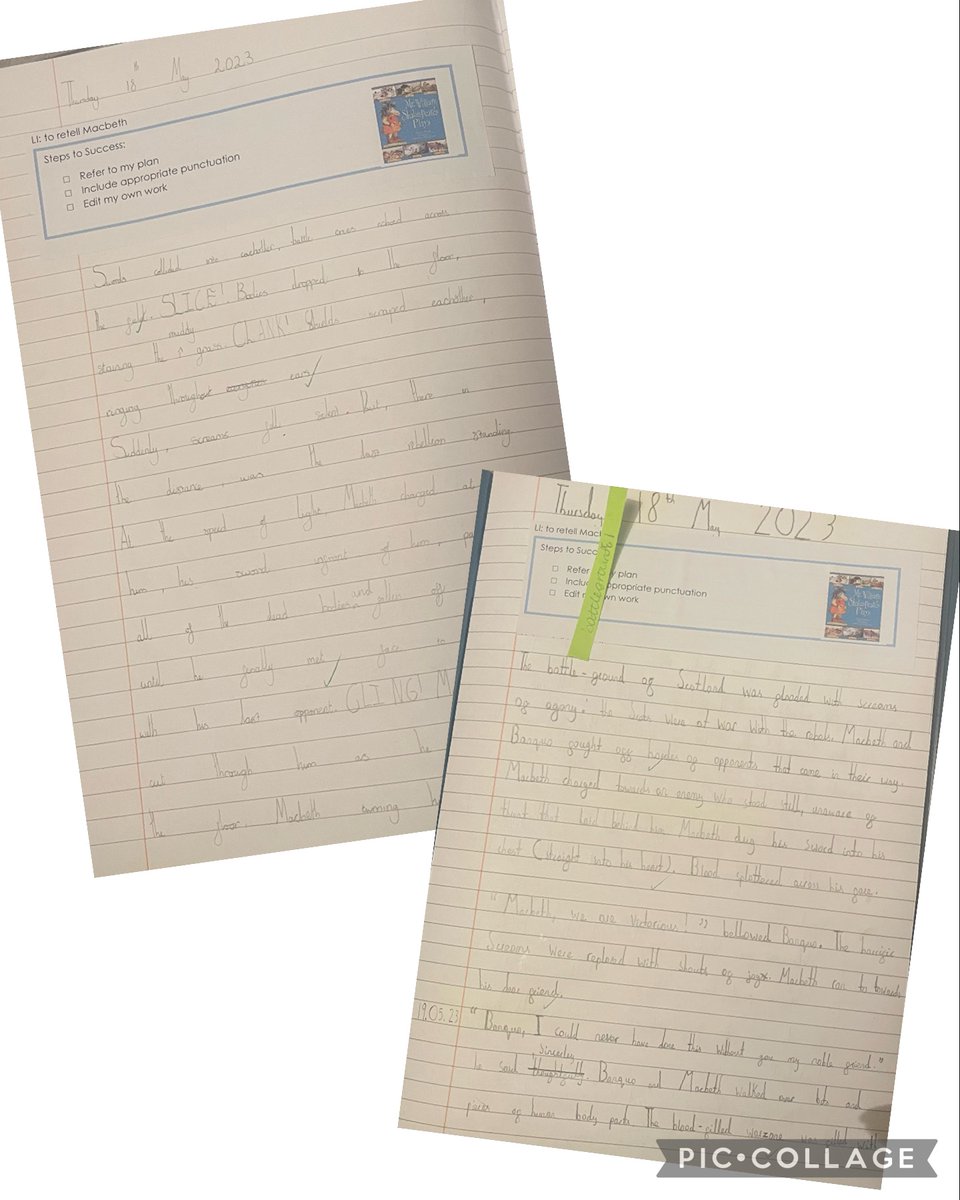 Thursday 18th May 2023
LI: to retell Macbeth
Steps to Success:
☐ Refer to my plan
☐ Include appropriate punctuation
☐ Edit my own work
Mr William
Shakespeare's
Plays
Swords collided into eachother, battle cries echoed across
the . SLICE! Bodies dropped to the floor,
muddy
staining the ^ grass. CLANK! Shields scraped eachother,
ringing throughout ears
Suddenly, screams fell silent. But, there in
the distance, was the last rebellion standing.
At the speed of light, Macbeth charged at
him, his sword infront of him,
all of the dead bodies and fallen
until he finally met face to
with his last opponent. CLING! M
cut through him as he
the floor. Macbeth
Thursday 18th May 2023
LI: to retell Mac
Steps to Succ
☐ Refer my plan
☐ Includ appropriate punctuation
☐ Edit my own work
battleground!
Mr William
Shakespeare's
Plays
The battle-ground of Scotland was flooded with screams
of agony: the Scots were at war with the rebels. Macbeth and
Banquo fought off hordes of opponents that came in their way.
Macbeth charged towards an enemy who stood still, unaware of
threat that laid behind him. Macbeth dug his sword into his
chest (straight into his heart). Blood splattered across his face.
"Macbeth, we are victorious!" bellowed Banquo. The
screams were replaced with shouts of joy. Macbeth ran to towards
his dear friend.
19.05.23 "Banquo, I could never have done this without you my noble friend."
sincerley
he said thoughtfully. Banquo and Macbeth walked over bits and
pieces of human body parts. The blood-filled warzone was filled with
PIC•COLLAGE